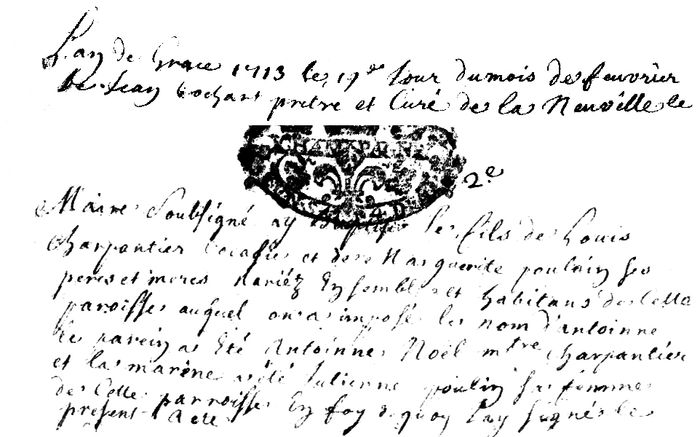 L'an de Grace 1713 le 19e Jour du mois de feuvrier
Je Jean Cochart pretre et Curé de la Neuville le
CHAMPAGNE
2e
Maire Soubsigné ay le fils de Louis
Charpentier et de Marguerite poulain ses
peres et meres Mariéz Ensembles et habitans de Cette
paroisse auquel on a imposé le nom d'antoinne
Le parein a Eté Antoinne Noël mtre Charpantier
et la marène a été Julienne poulin sa femme
de Cette parroisse En foy de quoy J'ay signé le
présent Acte